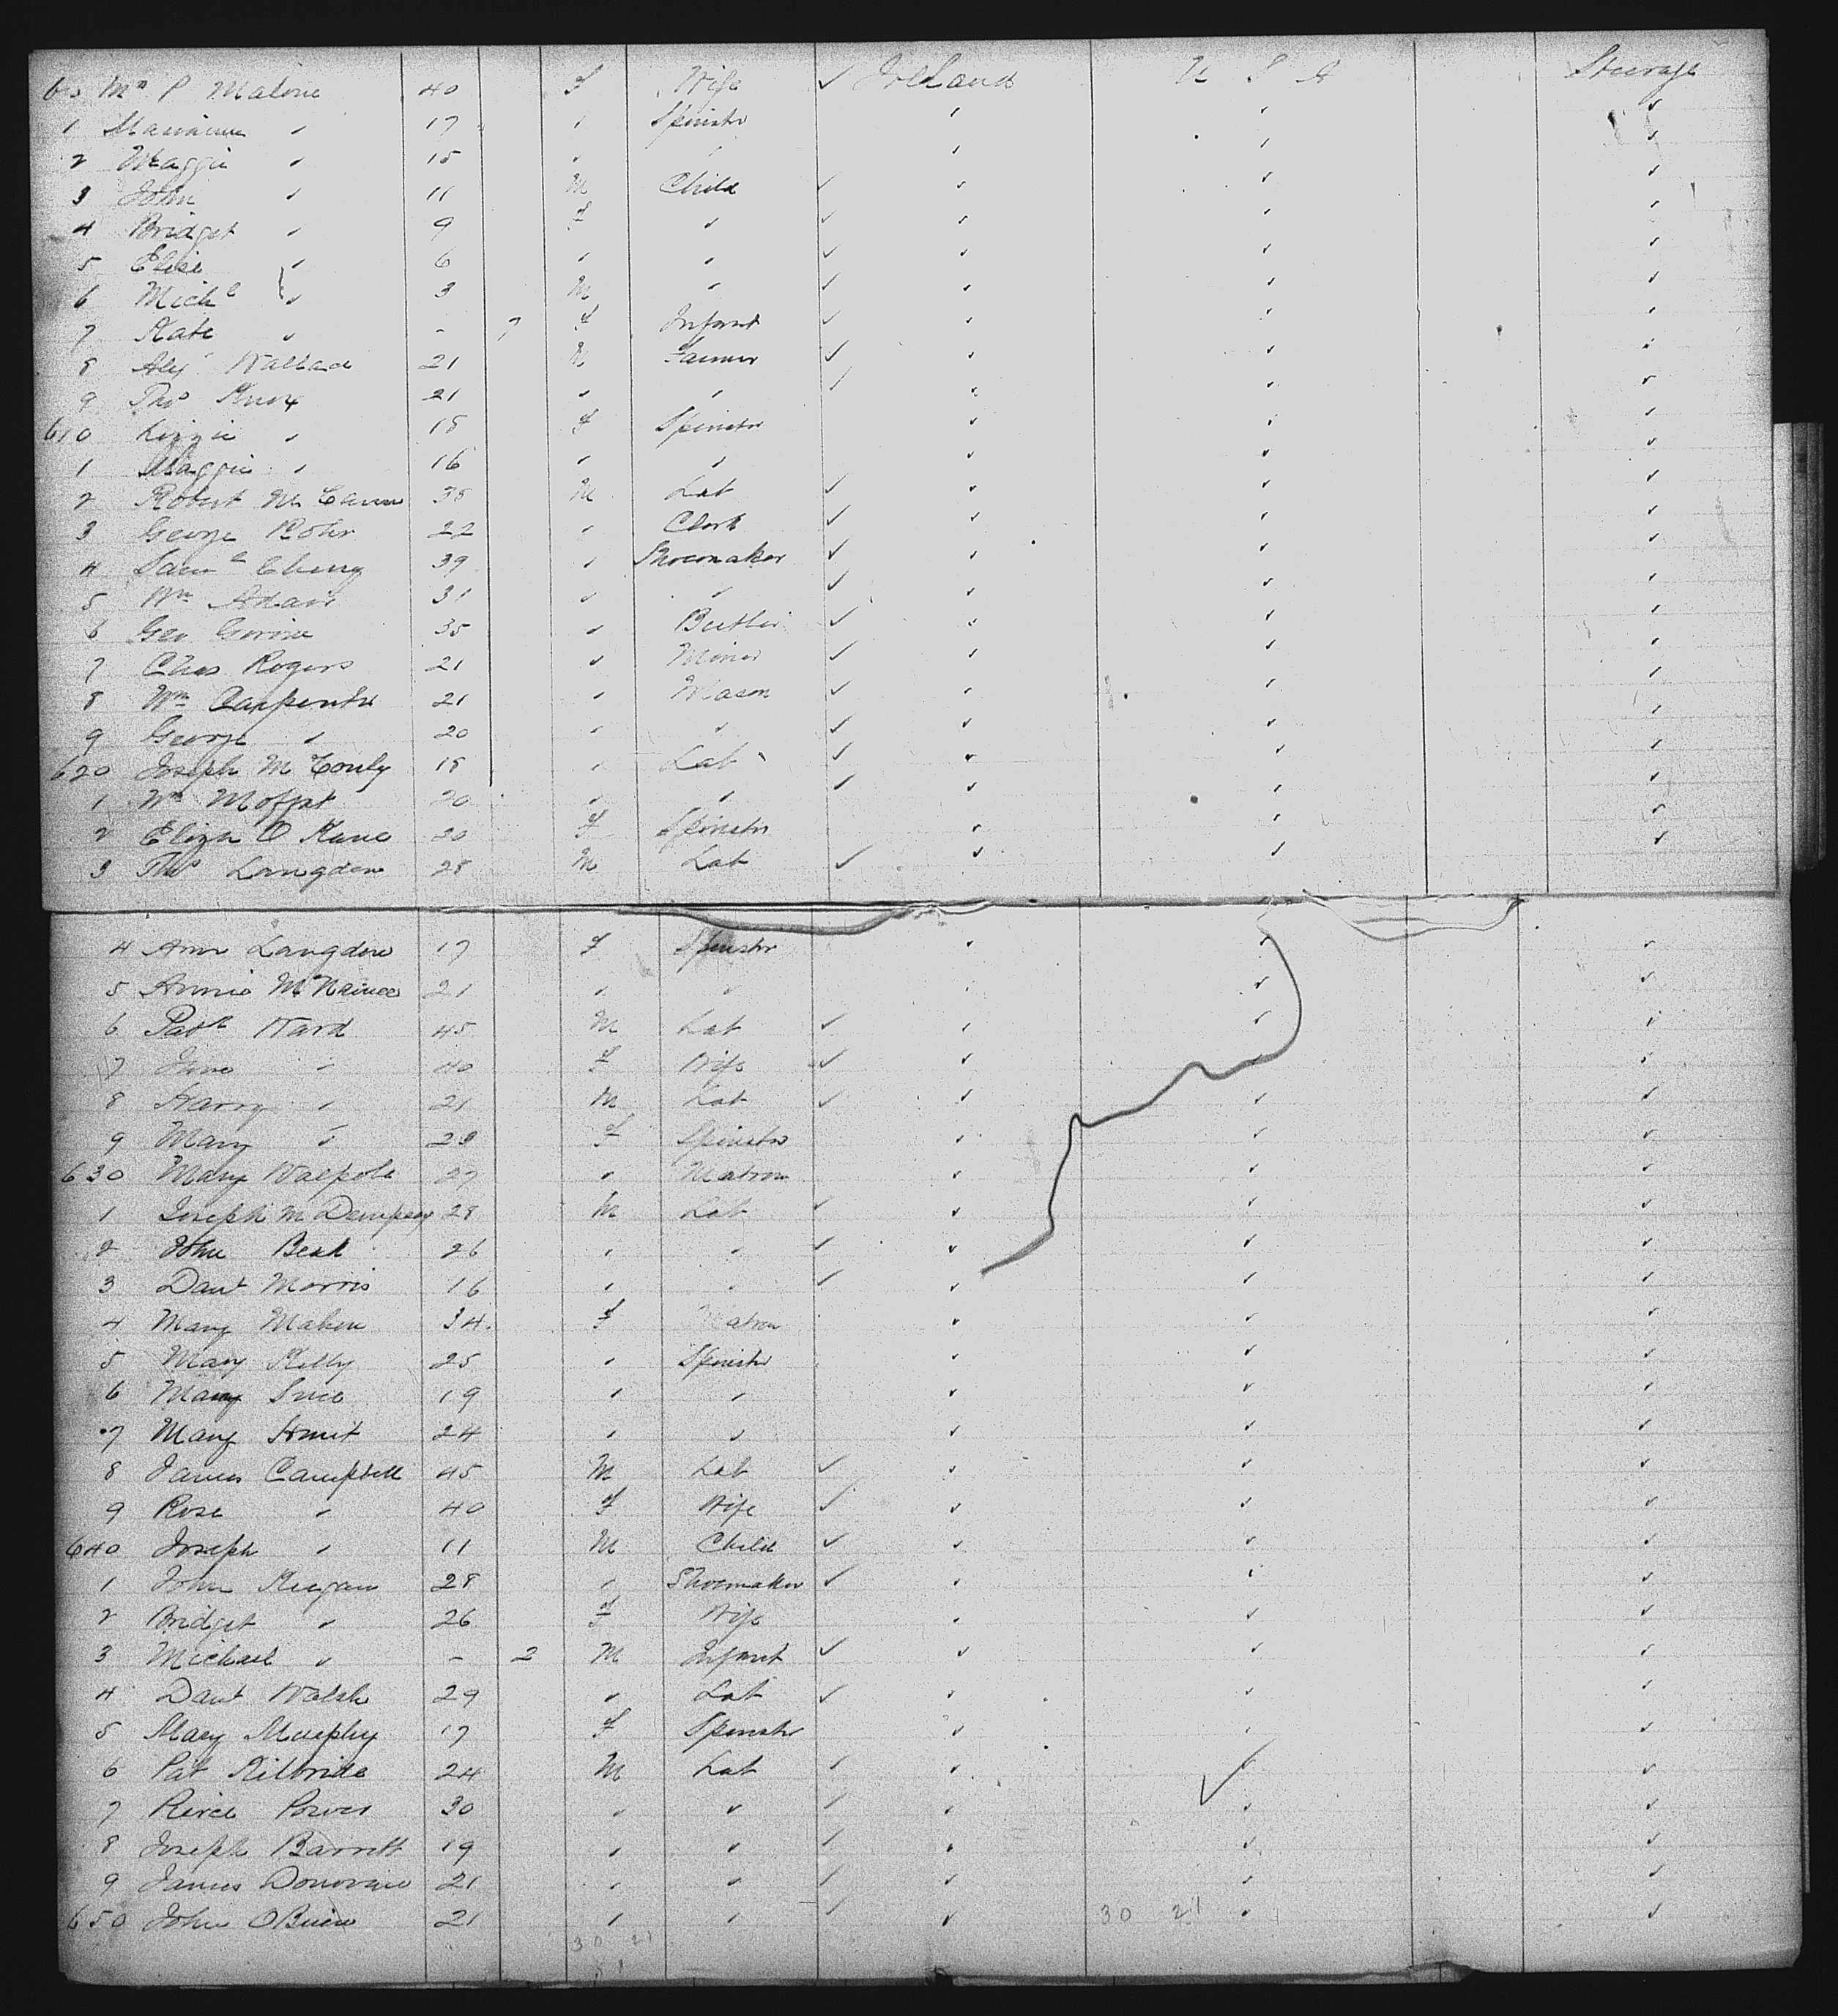 Mrs P Malone 40 F Wife ✓ Ireland U S A Steerage
1 " 17 " Spinstr " " "
2 Maggie " 15 " " " " "
3 John " 11 M Child ✓ " " "
4 Bridget " 9 F " ✓ " " "
5 Elise " 6 " " ✓ " " "
6 Michl " 3 M " ✓ " " "
7 Kate " - 7 F Infant ✓ " " "
8 Alex Wallace 21 M Farmer ✓ " " "
9 Thos Knox 21 " " ✓ " " "
610 Lizzie " 18 F Spinstr " " "
1 Maggie " 16 " " " " "
2 Robert 35 M Lab ✓ " " "
3 George 22 " Clerk ✓ " " "
4 Saml 39 " Shoemaker ✓ " " "
5 Wm Adair 31 " " ✓ " " "
6 Geo 35 " Butler ✓ " " "
7 Chas Rogers 21 " Miner ✓ " " "
8 Wm Carpenter 21 " Mason ✓ " " "
9 George " 20 " " ✓ " " "
620 Joseph 18 " Lab ✓ " " "
1 Wm Moffat 20 " " ✓ " " "
2 Eliza O Kane 20 F Spinstr " " "
3 Thos Langdon 28 M Lab ✓ " " "
4 Ann Langdon 17 F Spinstr " " "
5 Annie 21 " " " " "
6 Patk Ward 45 M Lab ✓ " " "
7 " 40 F Wife ✓ " " "
8 Harry " 21 M Lab ✓ " " "
9 Mary " F Spinstr " " "
630 Mary Walpole 27 " Matron " " "
1 Joseph M Dempsey 28 M Lab ✓ " " "
2 John 26 " " ✓ " " "
3 Danl Morris 16 " " ✓ " " "
4 Mary Mahon 34 F Matron " " "
5 Mary Kelly 25 " Spinstr " " "
6 Mary 19 " " " " "
7 Mary 24 " " " " "
8 James Campbell 45 M Lab ✓ " " "
9 Rose " 40 F Wife ✓ " " "
640 Joseph " 11 M Child ✓ " " "
1 John Keegan 28 " Shoemaker ✓ " " "
2 Bridget " 26 F Wife " " "
3 Michael " - 2 M Infant ✓ " " "
4 Danl Walsh 29 " Lab ✓ " " "
5 Mary Murphy 17 F Spinstr " " "
6 Pat Kilbride 24 M Lab ✓ " " "
7 Pierce Power 30 " " ✓ " " "
8 Joseph Barrett 19 " " ✓ " " "
9 James Donovan 21 " " ✓ " " "
650 John OBrien 21 " " ✓ " 30 21 " "
30 21